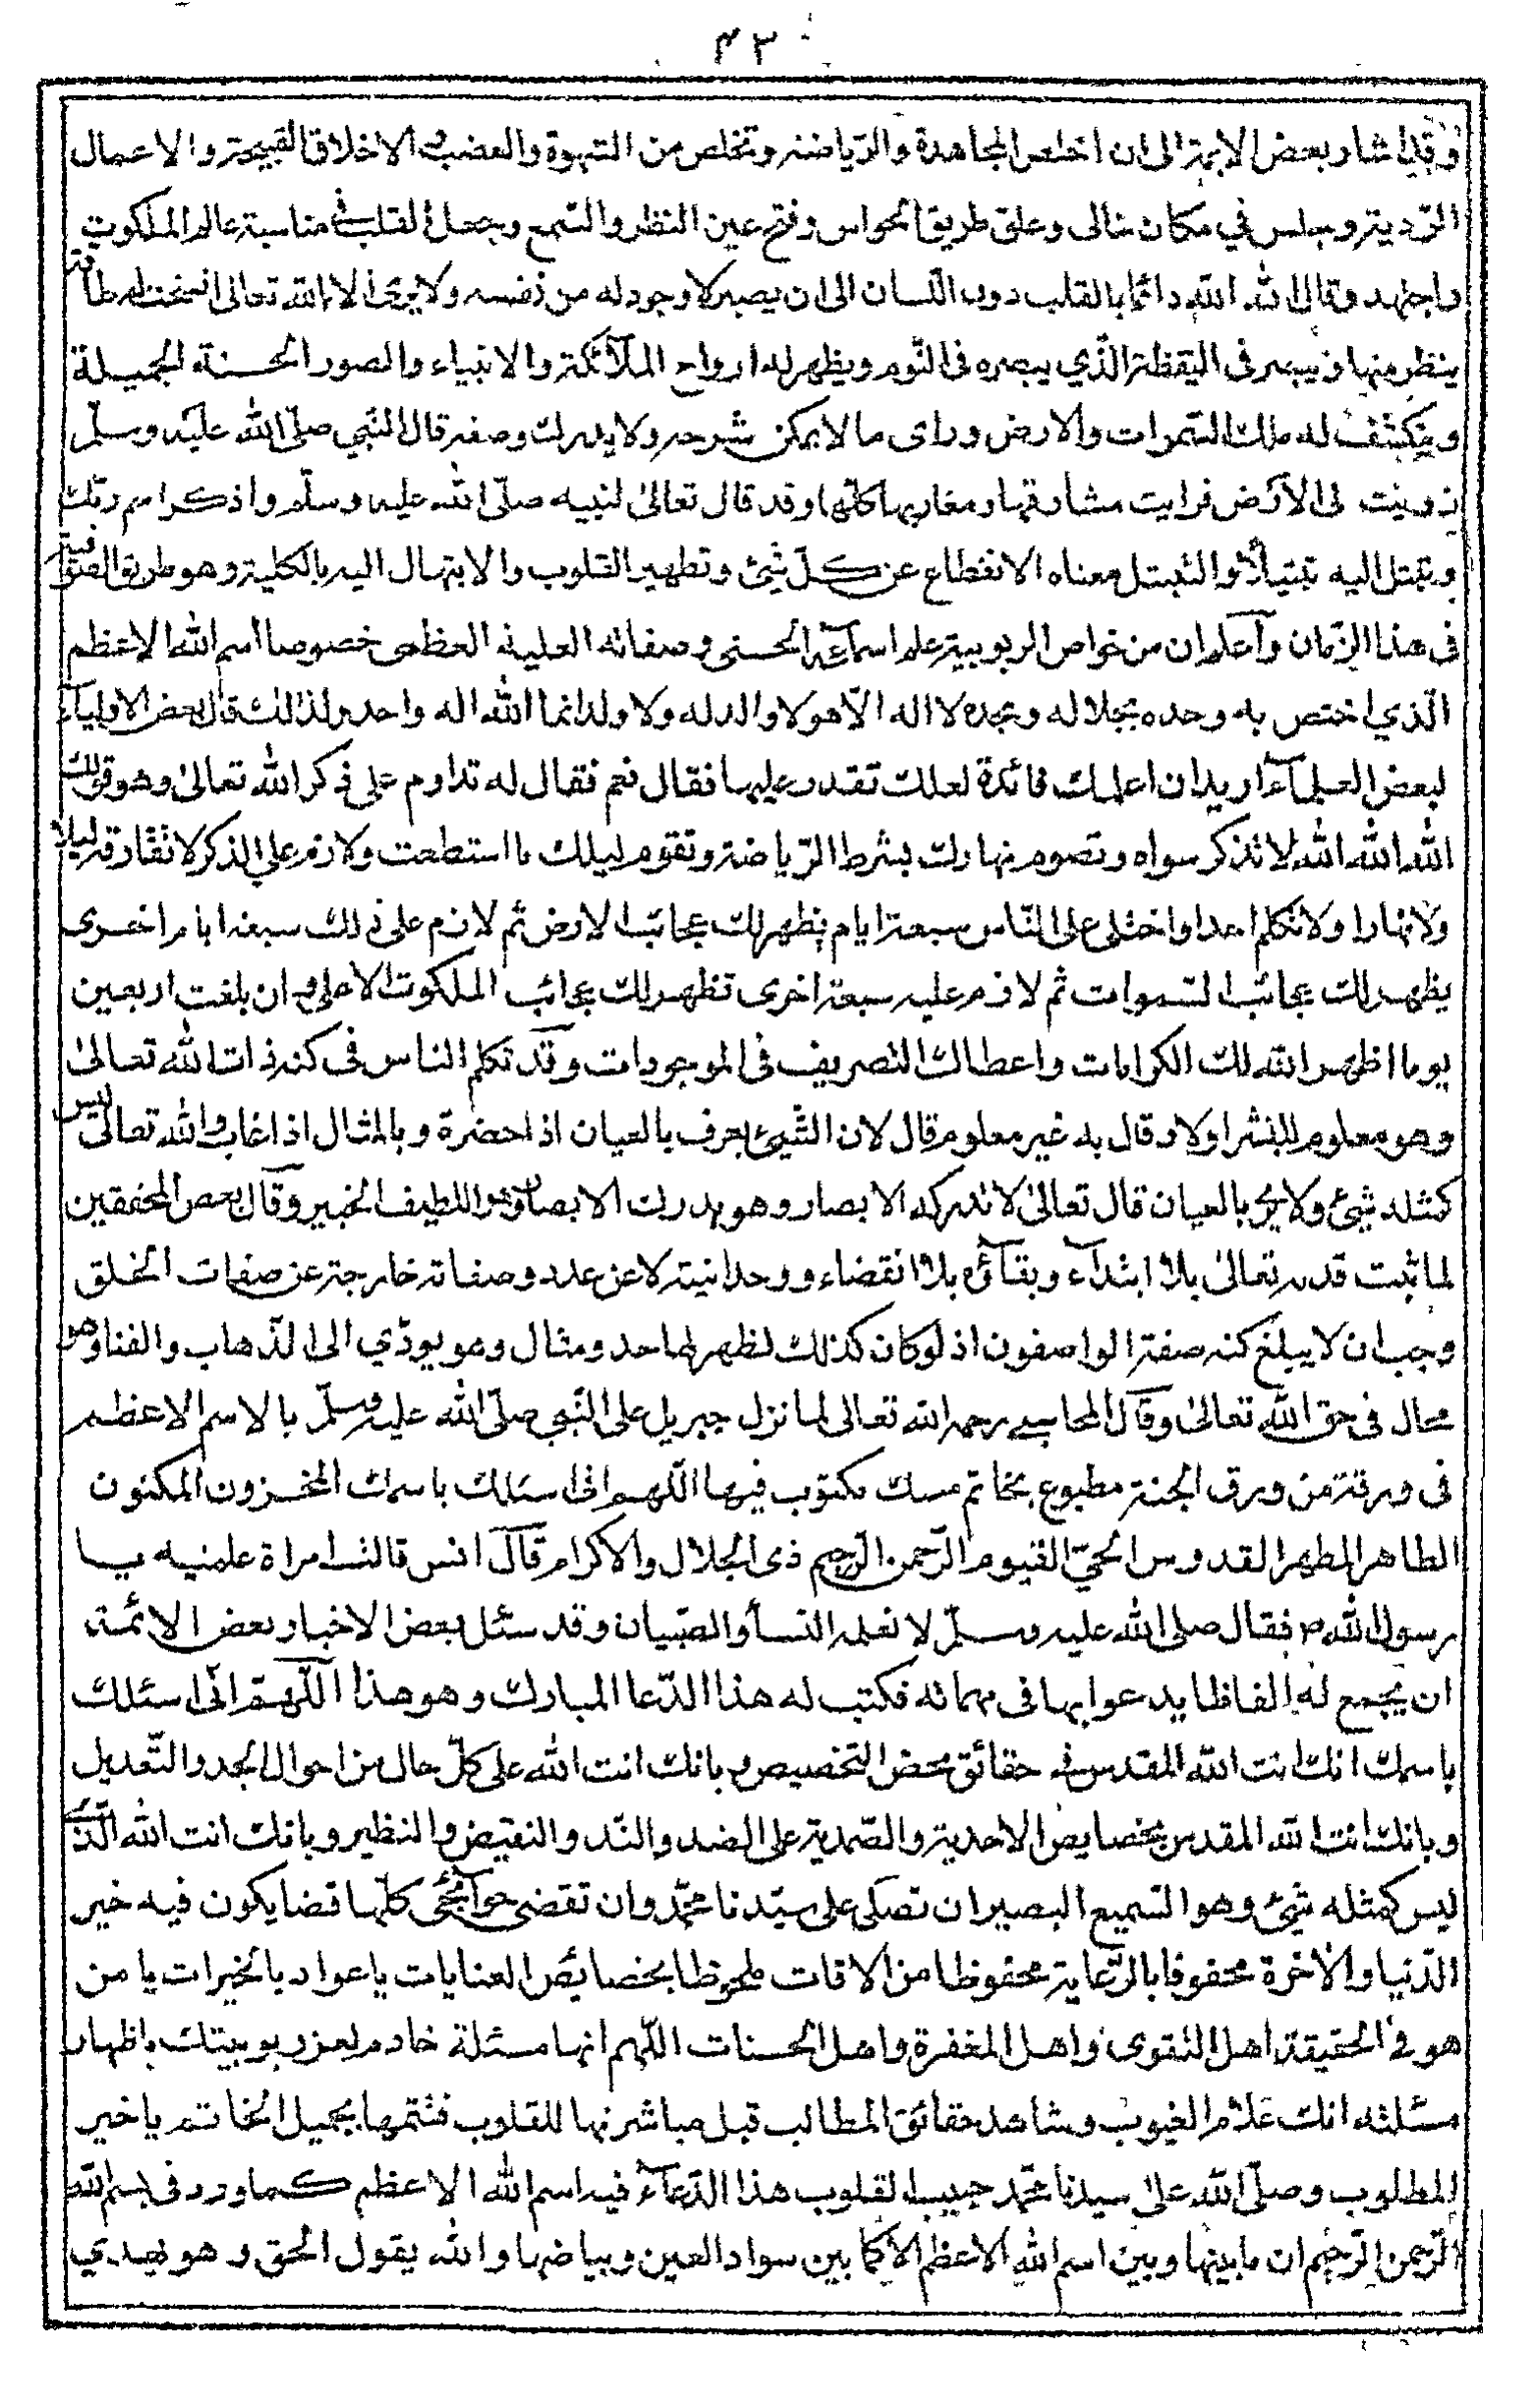 ٤٣
وقد اشار بعض الائمة الى ان اخلص المجاهدة والرياضة وتخلص من الشهوة والغضب والاخلاق القبيحة والاعمال
الردية وجلس في مكان خالى وعلق طريق الحواس وفتح عين النظر والسمع وجعل القلب في مناسبة عالم الملكوت
واجتهد وقال الله الله دائما بالقلب دون اللسان الى ان يصير لا وجود له من نفسه ولا يرى الا الله تعالى انفتحت له طاقة
ينظر منها ويبصر فى اليقظة الذي يبصره فى النوم ويظهر له ارواح الملآئكة والانبياء والصور الحسنة الجميلة
وينكشف له ملك السموات والارض وراى ما لا يمكن شرحه ولا يدرك وصفه قال النبي صلى الله عليه وسلم
زويت لى الارض فرايت مشارقها ومغاربها كلها وقد قال تعالى لنبيه صلى الله عليه وسلم واذكر اسم ربك
وتبتل اليه تبتيلا والتبتل معناه الانقطاع عن كل شئ وتطهير القلوب والابتهال اليه بالكلية وهو طريق الصوفية
فى هذا الزمان وآعلم ان من خواص الربوبية علم اسمائه الحسنى وصفاته العلية العظمى خصوصا اسم الله الاعظم
الذي اختص به وحده بجلاله ومجده لا اله الا هو لا والد له ولا ولد انما الله اله واحد ولذالك قال بعض الاوليآء
لبعض العلمآء اريد ان اعلمك فائدة لعلك تقدر عليها فقال نعم فقال له تداوم على ذكر الله تعالى وهو قولك
الله الله الله لا تذكر سواه وتصوم نهارك بشرط الرياضة وتقوم ليلك ما استطعت ولازم على الذكر لا تفارقه ليلا
ولا نهارا ولا تكلم احدا واختلى على الناس سبعة ايام يظهر لك عجائب الارض ثم لازم على ذلك سبعة ايام اخرى
يظهر لك عجائب السموات ثم لازم عليه سبعة اخرى تظهر لك عجائب الملكوت الاعلى وان بلغت اربعين
يوما اظهر الله لك الكرامات واعطاك التصريف فى الموجودات وقد تكلم الناس فى كنه ذات الله تعالى
وهو معلوم للبشر اولا وقال به غير معلوم قال لان الشئ يعرف بالعيان اذا حضره وبالمثال اذا غاب والله تعالى ليس
كمثله شئ ولا يرى بالعيان قال تعالى لا تدركه الابصار وهو يدرك الابصار وهو اللطيف الخبير وقال بعض المحققين
لما ثبت قدمه تعالى بلا ابتدآء وبقآئه بلا انقضاء ووحدانيته لا عن عدد وصفاته خارجة عن صفات الخلق
وجب ان لا يبلغ كنه صفته الواصفون اذ لو كان كذلك لظهر لها حد ومثال وهو يودي الى الذهاب والفنا وهو
محال فى حق الله تعالى وقال المحاسبي رحمه الله تعالى لما نزل جبريل على النبي صلى الله عليه وسلم بالاسم الاعظم
فى ورقة من ورق الجنة مطبوع بخاتم مسك مكتوب فيها اللهم انى اسئلك باسمك المخزون المكنون
الطاهر المطهر القدوس الحي القيوم الرحمن الرحيم ذى الجلال والاكرام قال انس قالت امراة علمنيه يا
رسول الله ص فقال صلى الله عليه وسلم لا نعلمه النسآ والصبيان وقد سئل بعض الاخيار بعض الائمة
ان يجمع له الفاظا يدعو ابها فى مهماته فكتب له هذا الدعا المبارك وهو هذا اللهم انى اسئلك
باسمك انك انت الله المقدس في حقائق محض التخصيص وبانك انت الله على كل حال من احوال الجد والتعديل
وبانك انت الله المقدس بخصايص الاحدية والصمدية على الضد والند والنقيض والنظير وبانك انت الله الذي
ليس كمثله شئ وهو السميع البصير ان تصلى على سيدنا محمد وان تقضى حوآئجى كلها قضا يكون فيه خير
الدنيا والاخرة محفوفا بالرعاية محفوظا من الافات ملحوظا بخصايص العنايات يا عواد بالخيرات يا من
هو فى الحقيقة اهل التقوى واهل المغفرة واهل الحسنات اللهم انها مسئلة خادم لعز ربوبيتك باظهار
مسئلته انك علام الغيوب وشاهد حقائق المطالب قبل مباشرتها للقلوب فتتمها بجميل الخاتم يا خير
المطلوب وصلى الله على سيدنا محمد حبيب القلوب هذا الدعآء فيه اسم الله الاعظم كما ورد فى بسم الله
الرحمن الرحيم ان ما بينها وبين اسم الله الاعظم الا كما بين سواد العين وبياضها والله يقول الحق وهو يهدي